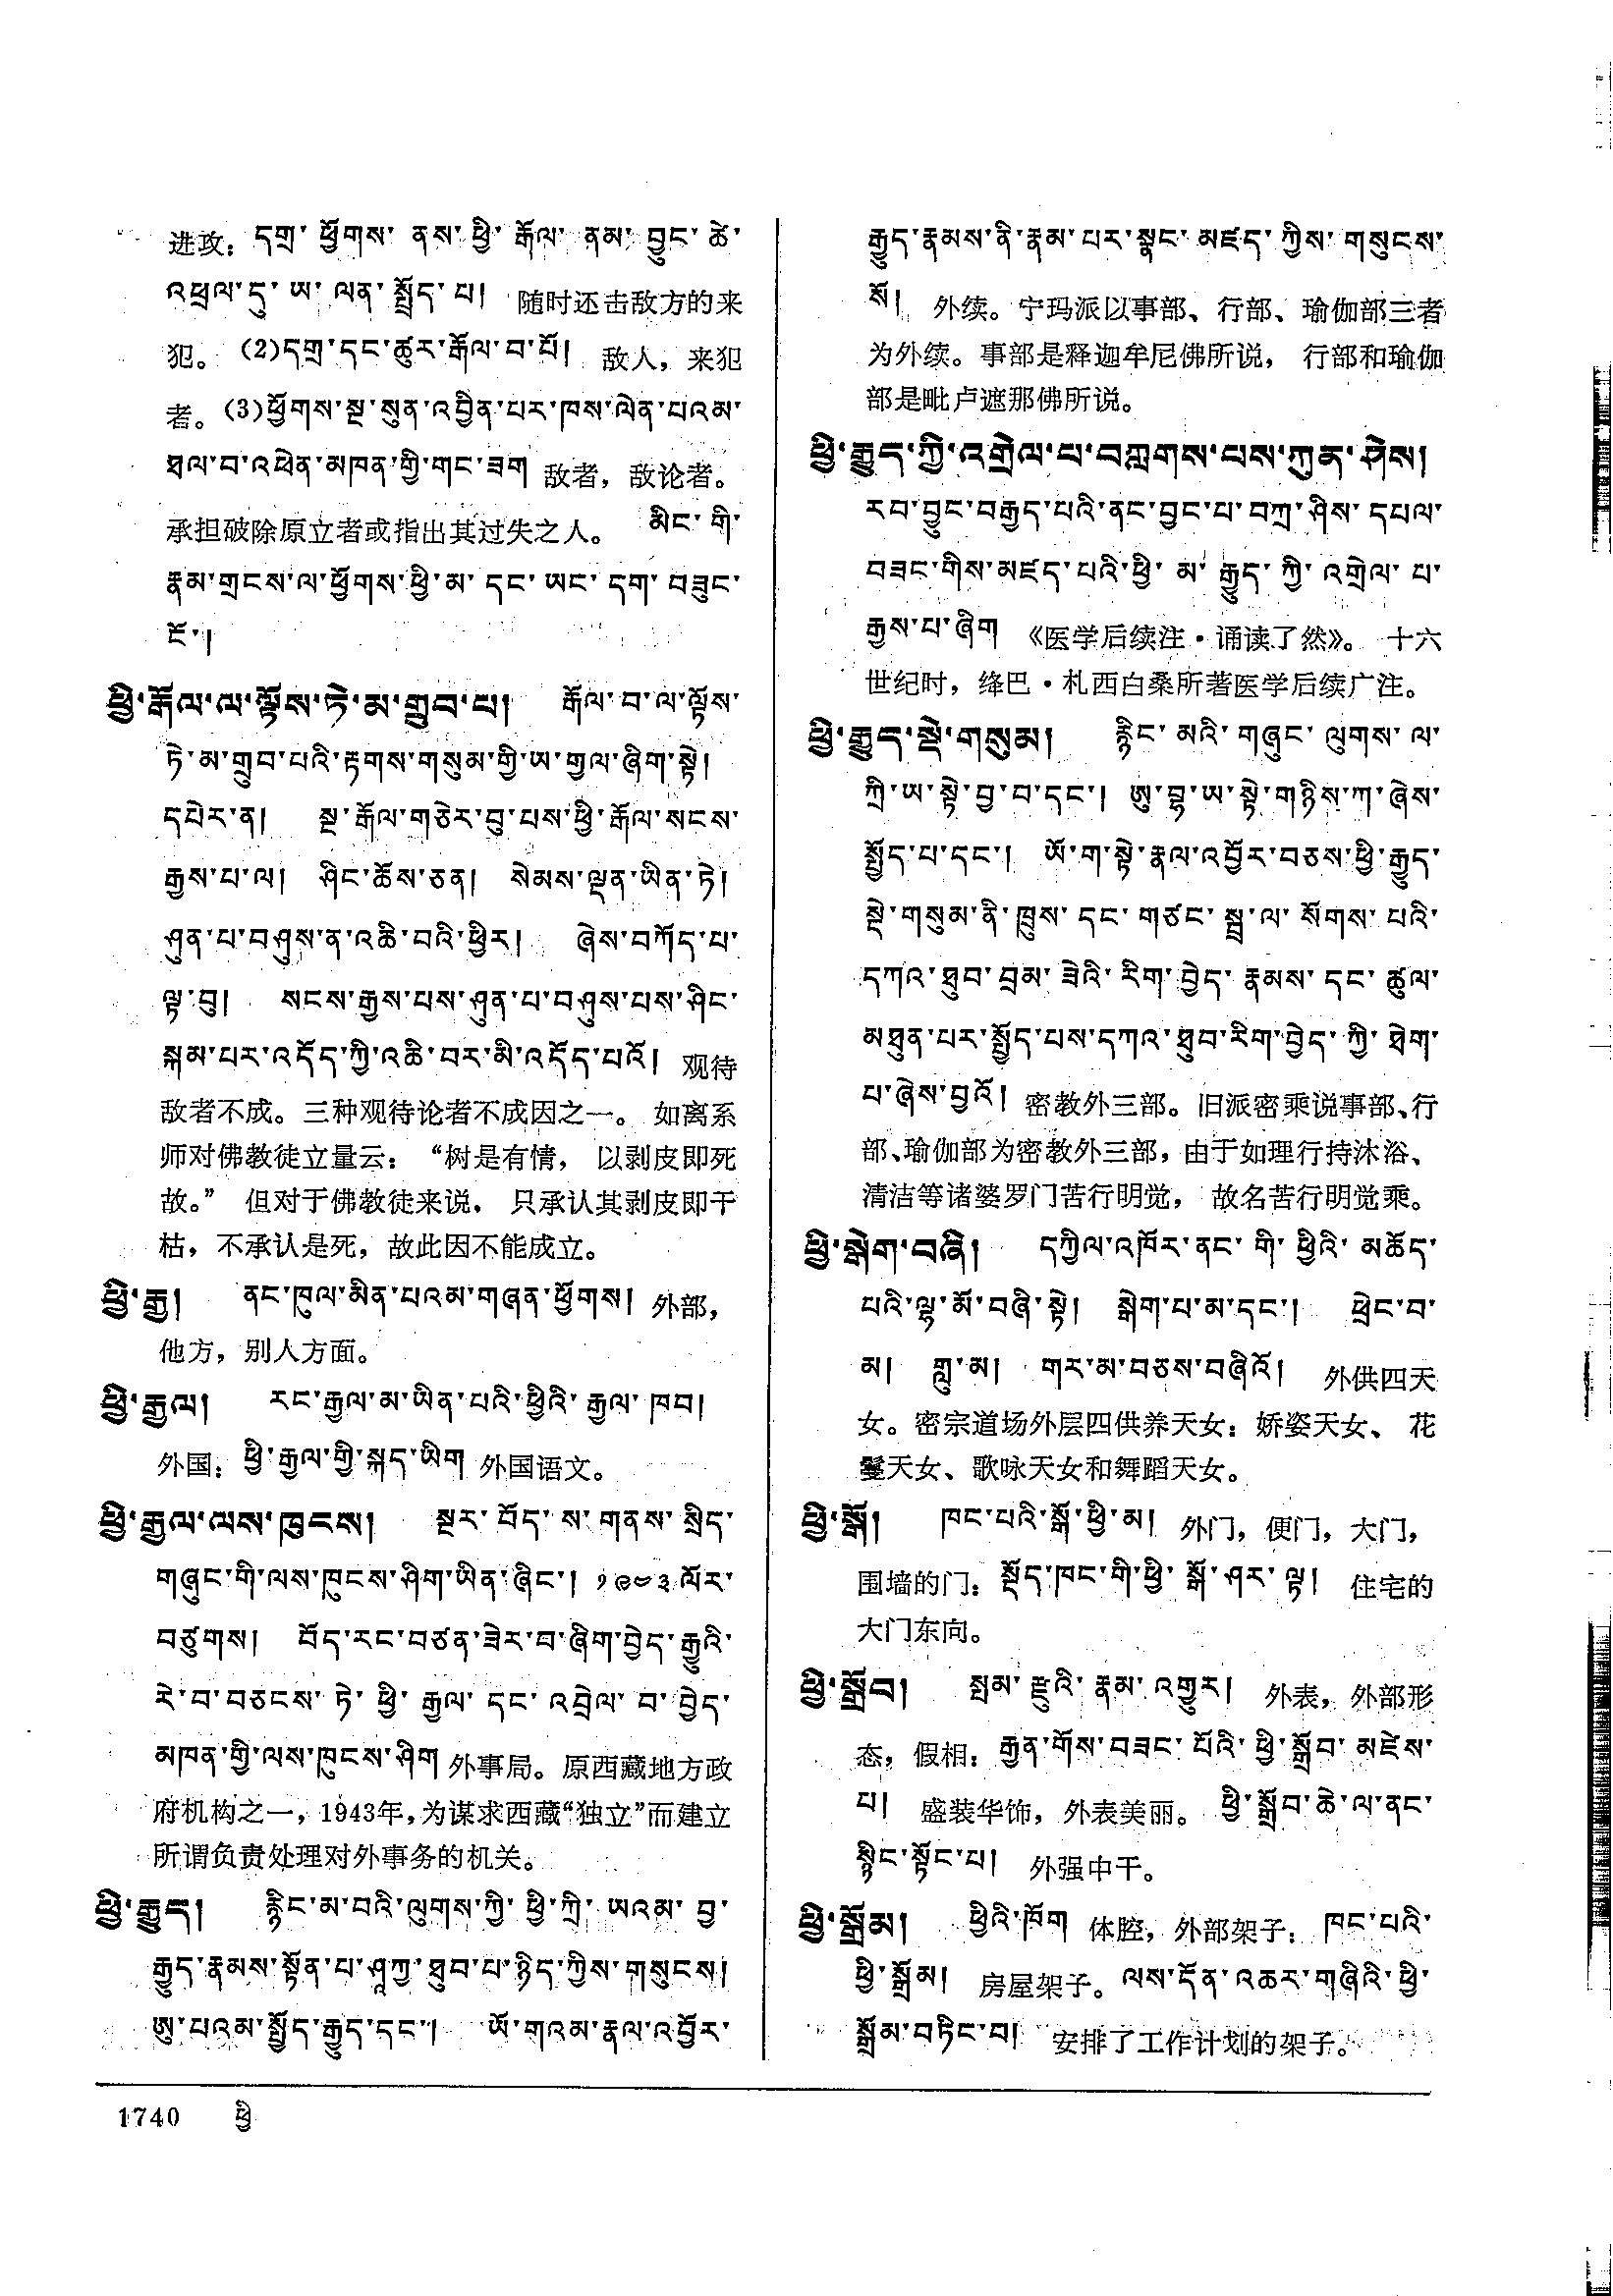 进攻：དགྲ་ ཕྱོགས་ ནས་ ཕྱི་ རྒོལ་ ནམ་ བྱུང་ ཚེ་
འཕྲལ་དུ་ ཡ་ ལན་ སྤྲོད་ པ། 随时还击敌方的来
犯。(2)དགྲ་དང་ཚུར་རྒོལ་བ་པོ། 敌人，来犯
者。(3)ཕྱོགས་སྔ་སུན་འབྱིན་པར་ཁས་ལེན་པའམ་
ཐལ་བ་འཕེན་མཁན་གྱི་གང་ཟག 敌者，敌论者。
承担破除原立者或指出其过失之人。 མིང་ གི་
རྣམ་གྲངས་ལ་ཕྱོགས་ཕྱི་མ་ དང་ ཡང་ དག་ བཟུང་
ངོ་།
ཕྱི་རྒོལ་ལ་ལྟོས་ཏེ་མ་གྲུབ་པ། རྒོལ་བ་ལ་ལྟོས་
ཏེ་མ་གྲུབ་པའི་རྟགས་གསུམ་གྱི་ཡ་གྱལ་ཞིག་སྟེ།
དཔེར་ན། སྔ་རྒོལ་གཅེར་བུ་པས་ཕྱི་རྒོལ་སངས་
རྒྱས་པ་ལ། ཤིང་ཆོས་ཅན། སེམས་ལྡན་ཡིན་ཏེ།
ཤུན་པ་བཤུས་ན་འཆི་བའི་ཕྱིར། ཞེས་བཀོད་པ་
ལྟ་བུ། སངས་རྒྱས་པས་ཤུན་པ་བཤུས་པས་ཤིང་
སྐམ་པར་འདོད་ཀྱི་འཆི་བར་མི་འདོད་པའོ། 观待
敌者不成。三种观待论者不成因之一。如离系
师对佛教徒立量云：“树是有情，以剥皮即死
故。” 但对于佛教徒来说，只承认其剥皮即干
枯，不承认是死，故此因不能成立。
ཕྱི་རྒྱ། ནང་ཁུལ་མིན་པའམ་གཞན་ཕྱོགས། 外部，
他方，别人方面。
ཕྱི་རྒྱལ། རང་རྒྱལ་མ་ཡིན་པའི་ཕྱིའི་ རྒྱལ་ ཁབ།
外国：ཕྱི་རྒྱལ་གྱི་སྐད་ཡིག 外国语文。
ཕྱི་རྒྱལ་ལས་ཁུངས། སྔར་ བོད་ ས་ གནས་ སྲིད་
གཞུང་གི་ལས་ཁུངས་ཤིག་ཡིན་ཞིང་། ༡༩༤༣ ལོར་
བཙུགས། བོད་རང་བཙན་ཟེར་བ་ཞིག་བྱེད་རྒྱུའི་
རེ་བ་བཅངས་ ཏེ་ ཕྱི་ རྒྱལ་ དང་ འབྲེལ་ བ་ བྱེད་
མཁན་གྱི་ལས་ཁུངས་ཤིག 外事局。原西藏地方政
府机构之一，1943年，为谋求西藏“独立”而建立
所谓负责处理对外事务的机关。
ཕྱི་རྒྱུད། རྙིང་མ་བའི་ལུགས་ཀྱི་ ཕྱི་ཀྲི་ ཡའམ་ བྱ་
རྒྱུད་རྣམས་སྟོན་པ་ཤཱཀྱ་ཐུབ་པ་ཉིད་ཀྱིས་གསུངས།
ཨུ་པའམ་སྤྱོད་རྒྱུད་དང་། ཡོ་གའམ་རྣལ་འབྱོར་
རྒྱུད་རྣམས་ནི་རྣམ་པར་སྣང་མཛད་ ཀྱིས་ གསུངས་
སོ། 外续。宁玛派以事部、行部、瑜伽部三者
为外续。事部是释迦牟尼佛所说，行部和瑜伽
部是毗卢遮那佛所说。
ཕྱི་རྒྱུད་ཀྱི་འགྲེལ་པ་བཀླགས་པས་ཀུན་ཤེས།
རབ་བྱུང་བརྒྱད་པའི་ནང་བྱང་པ་བཀྲ་ཤིས་ དཔལ་
བཟང་གིས་མཛད་པའི་ཕྱི་ མ་ རྒྱུད་ ཀྱི་ འགྲེལ་ པ་
རྒྱས་པ་ཞིག 《医学后续注·诵读了然》。十六
世纪时，绛巴·札西白桑所著医学后续广注。
ཕྱི་རྒྱུད་སྡེ་གསུམ། རྙིང་ མའི་ གཞུང་ ལུགས་ ལ་
ཀྲི་ཡ་སྟེ་བྱ་བ་དང་། ཨུ་བྷ་ཡ་སྟེ་གཉིས་ཀ་ཞེས་
སྤྱོད་པ་དང་། ཡོ་ག་སྟེ་རྣལ་འབྱོར་བཅས་ཕྱི་རྒྱུད་
སྡེ་གསུམ་ནི་ཁྲུས་ དང་ གཙང་ སྦྲ་ལ་ སོགས་ པའི་
དཀའ་ཐུབ་བྲམ་ ཟེའི་ རིག་བྱེད་ རྣམས་ དང་ ཚུལ་
མཐུན་པར་སྤྱོད་པས་དཀའ་ཐུབ་རིག་བྱེད་ཀྱི་ ཐེག་
པ་ཞེས་བྱའོ། 密教外三部。旧派密乘说事部、行
部、瑜伽部为密教外三部，由于如理行持沐浴、
清洁等诸婆罗门苦行明觉，故名苦行明觉乘。
ཕྱི་སྒེག་བཞི། དཀྱིལ་འཁོར་ནང་ གི་ ཕྱིའི་ མཆོད་
པའི་ལྷ་མོ་བཞི་སྟེ། སྒེག་པ་མ་དང་། ཕྲེང་བ་
མ། གླུ་མ། གར་མ་བཅས་བཞིའོ། 外供四天
女。密宗道场外层四供养天女：娇姿天女、花
鬘天女、歌咏天女和舞蹈天女。
ཕྱི་སྒོ། ཁང་པའི་སྒོ་ཕྱི་མ། 外门，便门，大门，
围墙的门：སྡོད་ཁང་གི་ཕྱི་ སྒོ་ཤར་ ལྟ། 住宅的
大门东向。
ཕྱི་སྒྲོབ། སྤམ་ རྫུའི་ རྣམ་ འགྱུར། 外表，外部形
态，假相：རྒྱན་གོས་བཟང་ པོའི་ ཕྱི་སྒྲོབ་ མཛེས་
པ། 盛装华饰，外表美丽。ཕྱི་སྒྲོབ་ཆེ་ལ་ནང་
སྙིང་སྟོང་པ། 外强中干。
ཕྱི་སྒྲོམ། ཕྱིའི་ཁོག 体腔，外部架子：ཁང་པའི་
ཕྱི་སྒྲོམ། 房屋架子。ལས་དོན་འཆར་གཞིའི་ཕྱི་
སྒྲོམ་བཏིང་བ། 安排了工作计划的架子。
1740 ཕྱི